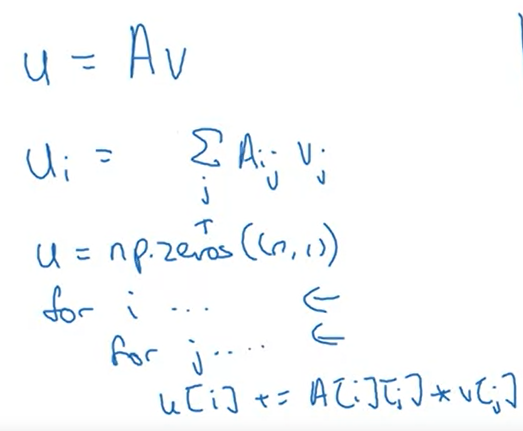 u = Av
uᵢ = Σⱼ Aᵢⱼ vⱼ
u = np.zeros((n,1))
for i ...
for j....
u[i] += A[i][j] * v[j]